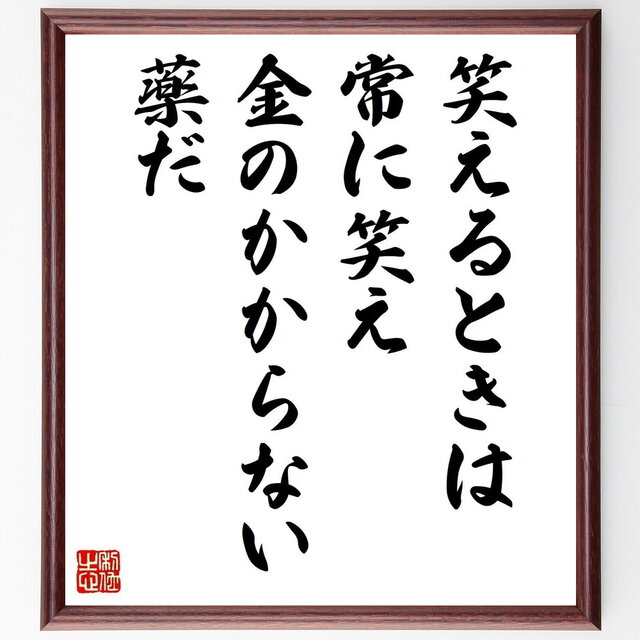 笑えるときは
常に笑え
金のかからない
薬だ